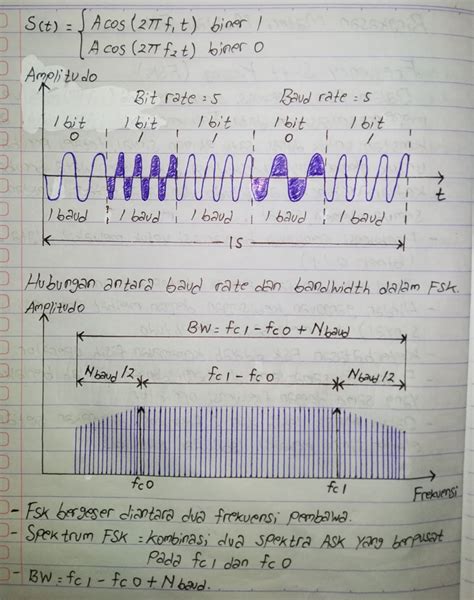 S(t) = { A cos (2πf₁t) biner 1
A cos (2πf₂t) biner 0
Amplitudo
Bit rate = 5 Baud rate = 5
1 bit 1 bit 1 bit 1 bit 1 bit
0 1 1 0 1
t
1 baud 1 baud 1 baud 1 baud 1 baud
1s
Hubungan antara baud rate dan bandwidth dalam FSK.
Amplitudo
BW = fc1 - fc0 + Nbaud
Nbaud/2 fc1 - fc0 Nbaud/2
fc0 fc1 Frekuensi
- FSK bergeser diantara dua frekuensi pembawa.
- Spektrum FSK = kombinasi dua spektra ASK yang berpusat
pada fc1 dan fc0
- BW = fc1 - fc0 + Nbaud.